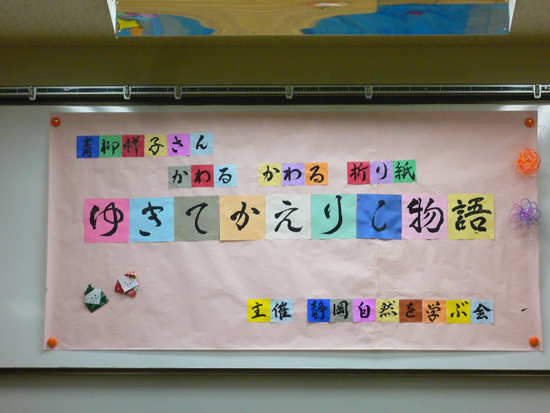 青柳惇子さん
かわる かわる 折り紙
ゆきてかえりし物語
主催 静岡自然を学ぶ会